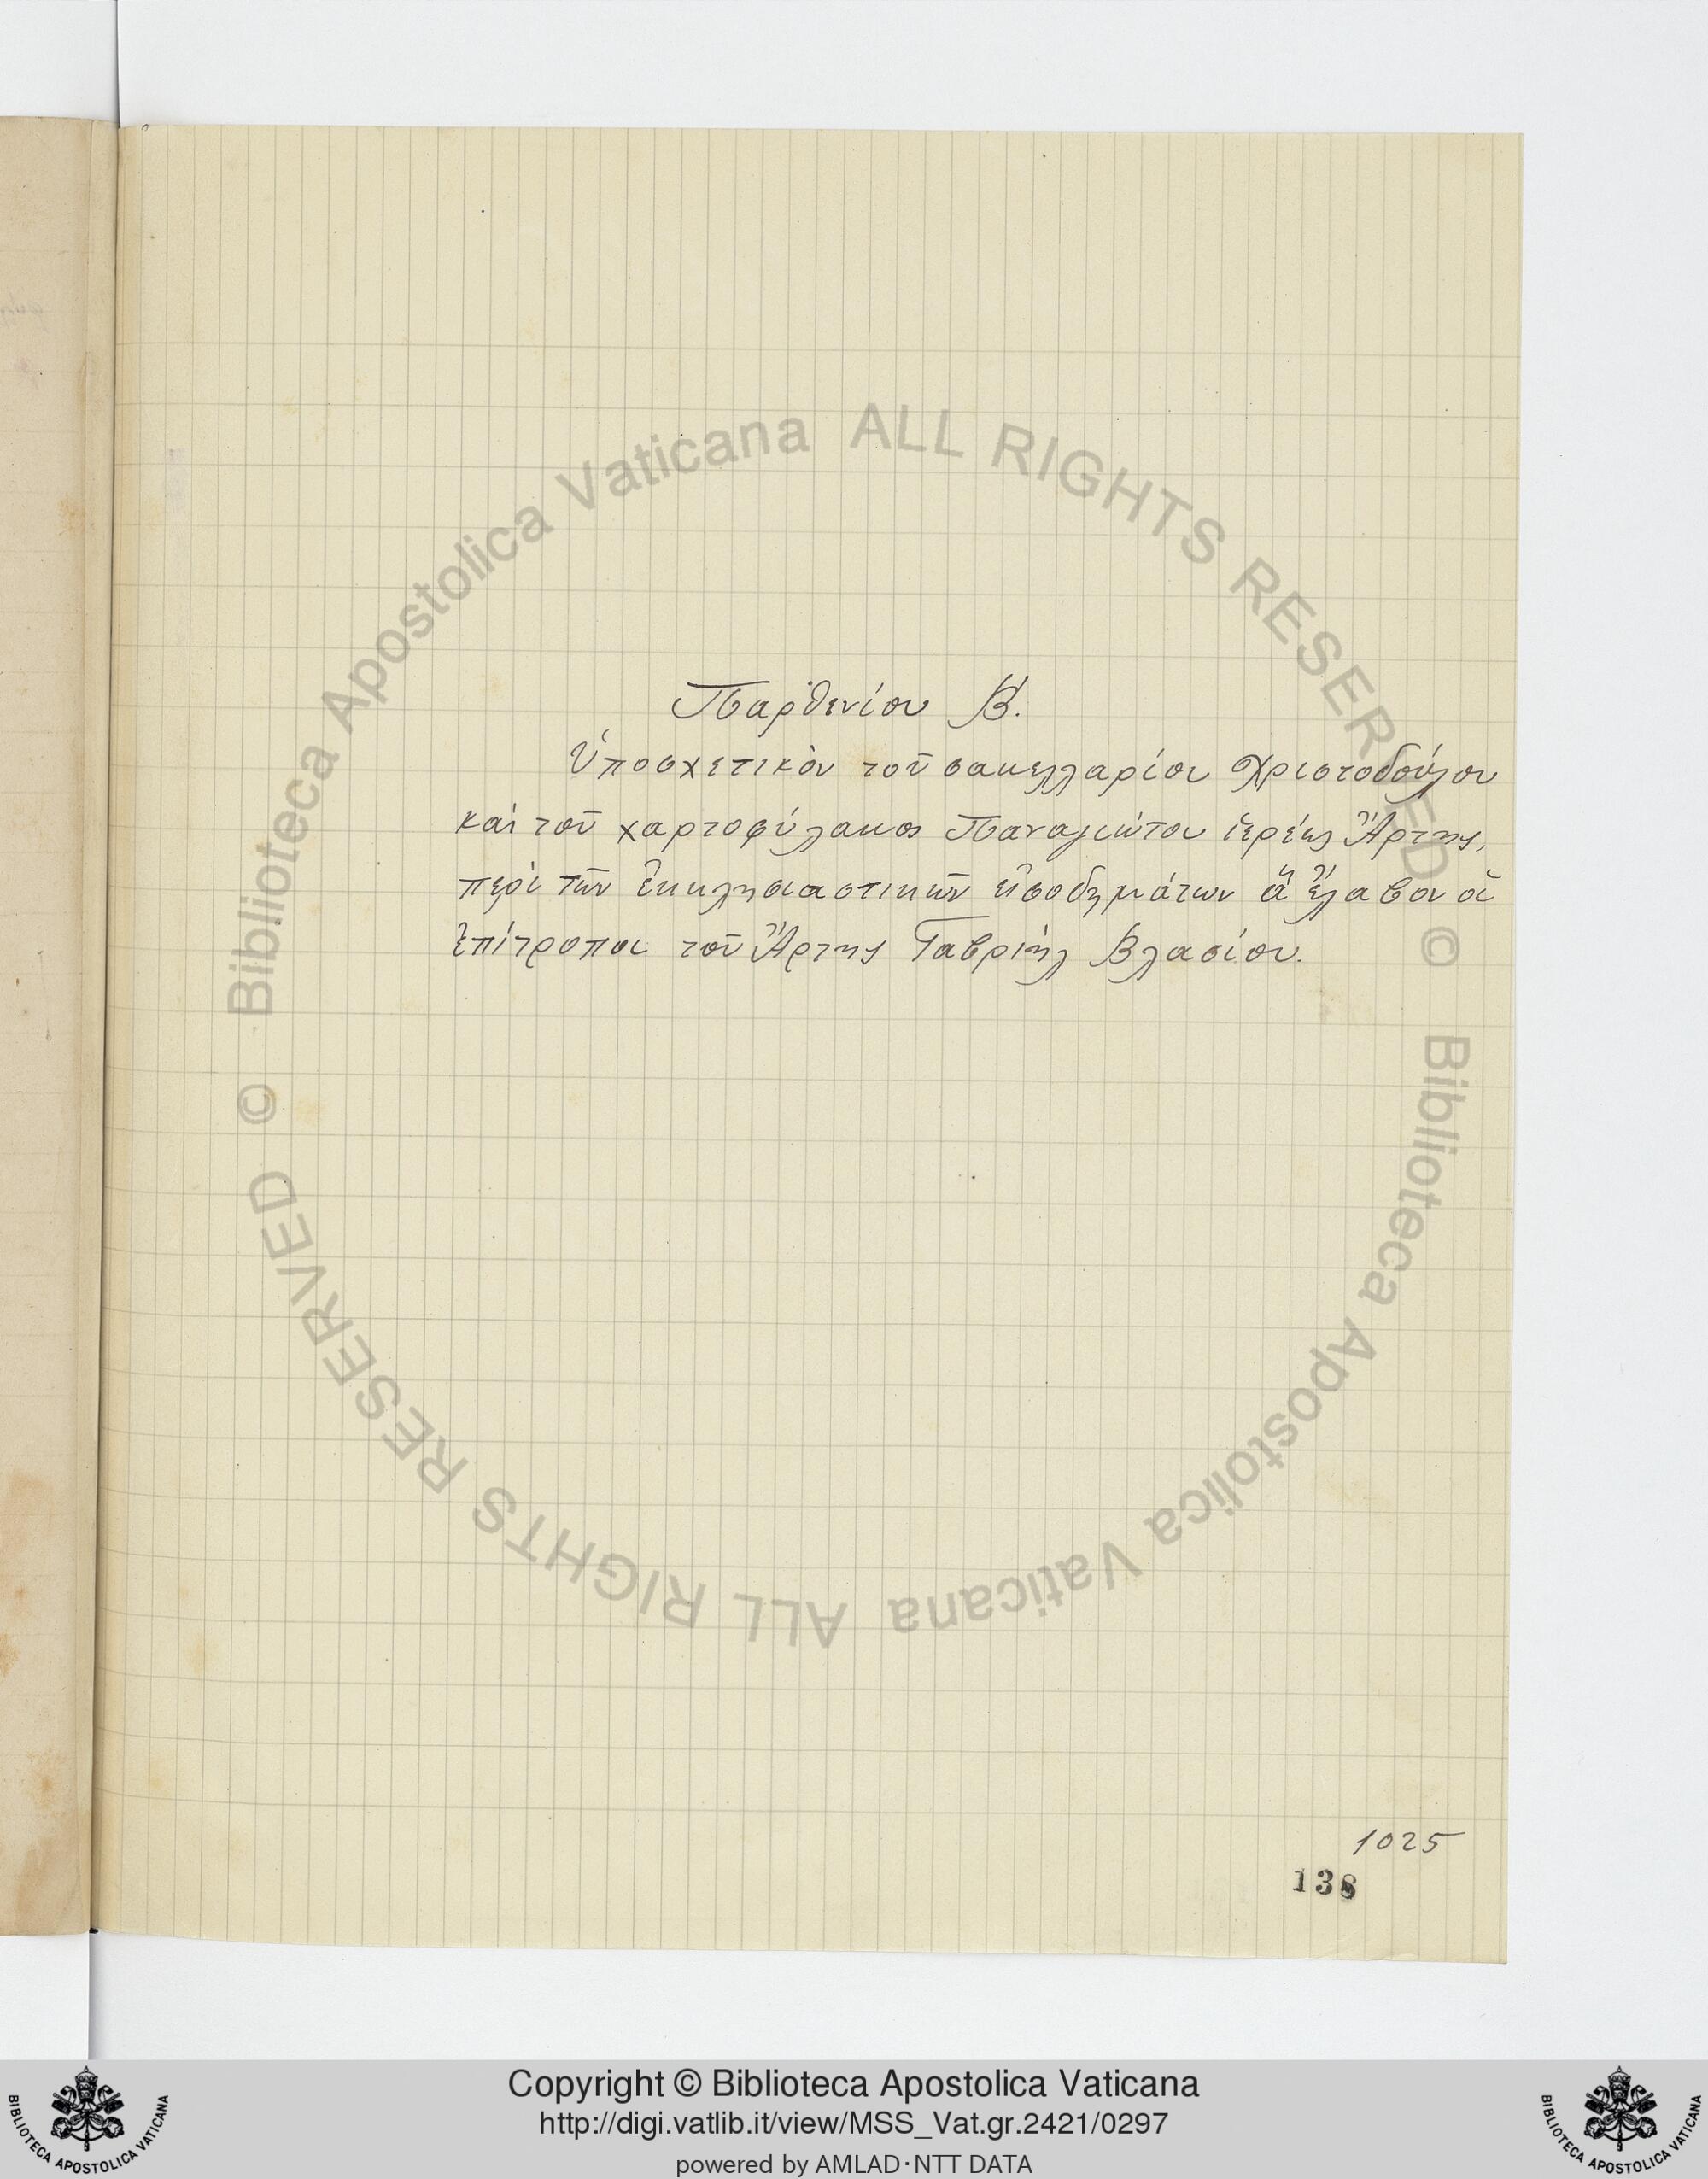 Παρθενίου Β΄.
Ὑποσχετικὸν τοῦ σακελλαρίου Χριστοδούλου
καὶ τοῦ χαρτοφύλακος Παναγιώτου ἱερέως Ἄρτης,
περὶ τῶν ἐκκλησιαστικῶν εἰσοδημάτων ἃ ἔλαβον οἱ
ἐπίτροποι τοῦ Ἄρτης Γαβριὴλ Βλασίου.
1025
138
© Biblioteca Apostolica Vaticana ALL RIGHTS RESERVED
© Biblioteca Apostolica Vaticana ALL RIGHTS RESERVED
Copyright © Biblioteca Apostolica Vaticana
http://digi.vatlib.it/view/MSS_Vat.gr.2421/0297
powered by AMLAD·NTT DATA
BIBLIOTECA APOSTOLICA VATICANA
BIBLIOTECA APOSTOLICA VATICANA